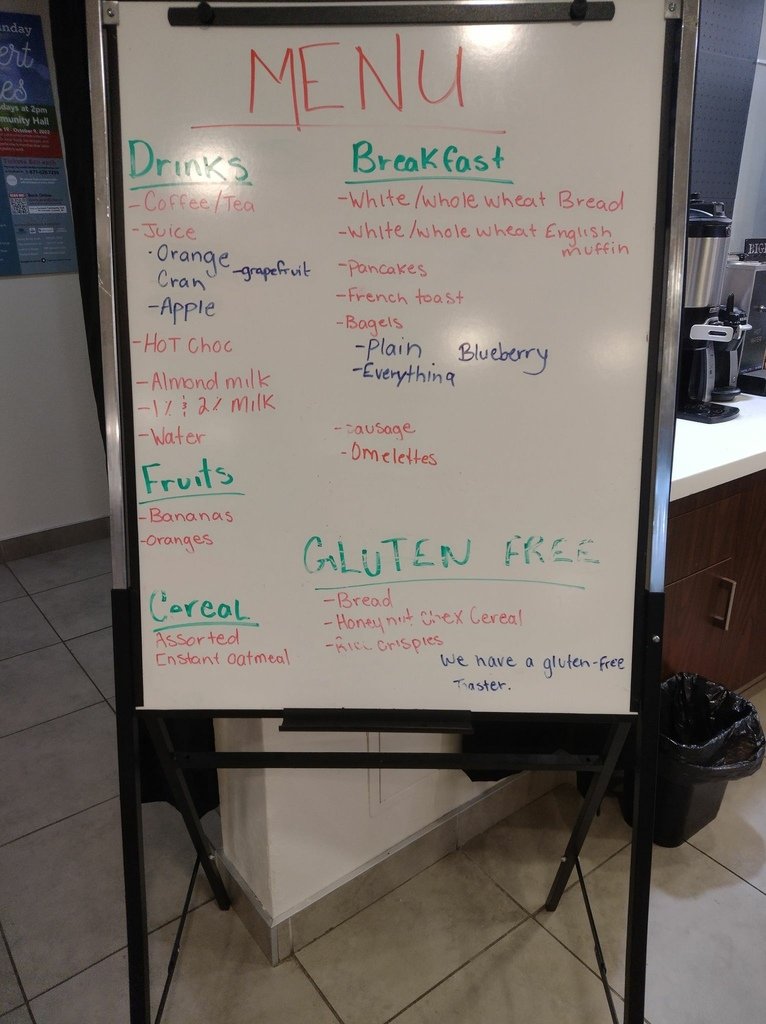 MENU
Drinks
-Coffee/Tea
-Juice
·Orange -grapefruit
Cran
-Apple
-HOT CHOC
-Almond milk
-1% & 2% Milk
-Water
Fruits
-Bananas
-oranges
Cereal
Assorted
Instant oatmeal
Breakfast
-White/whole wheat Bread
-White/whole wheat English
muffin
-Pancakes
-French toast
-Bagels
-Plain Blueberry
-Everything
-sausage
-Omelettes
GLUTEN FREE
-Bread
-Honey nut chex Cereal
-Rice crispies
We have a gluten-free
Toaster.
unday
ert
es
days at 2pm
munity Hall
BIG